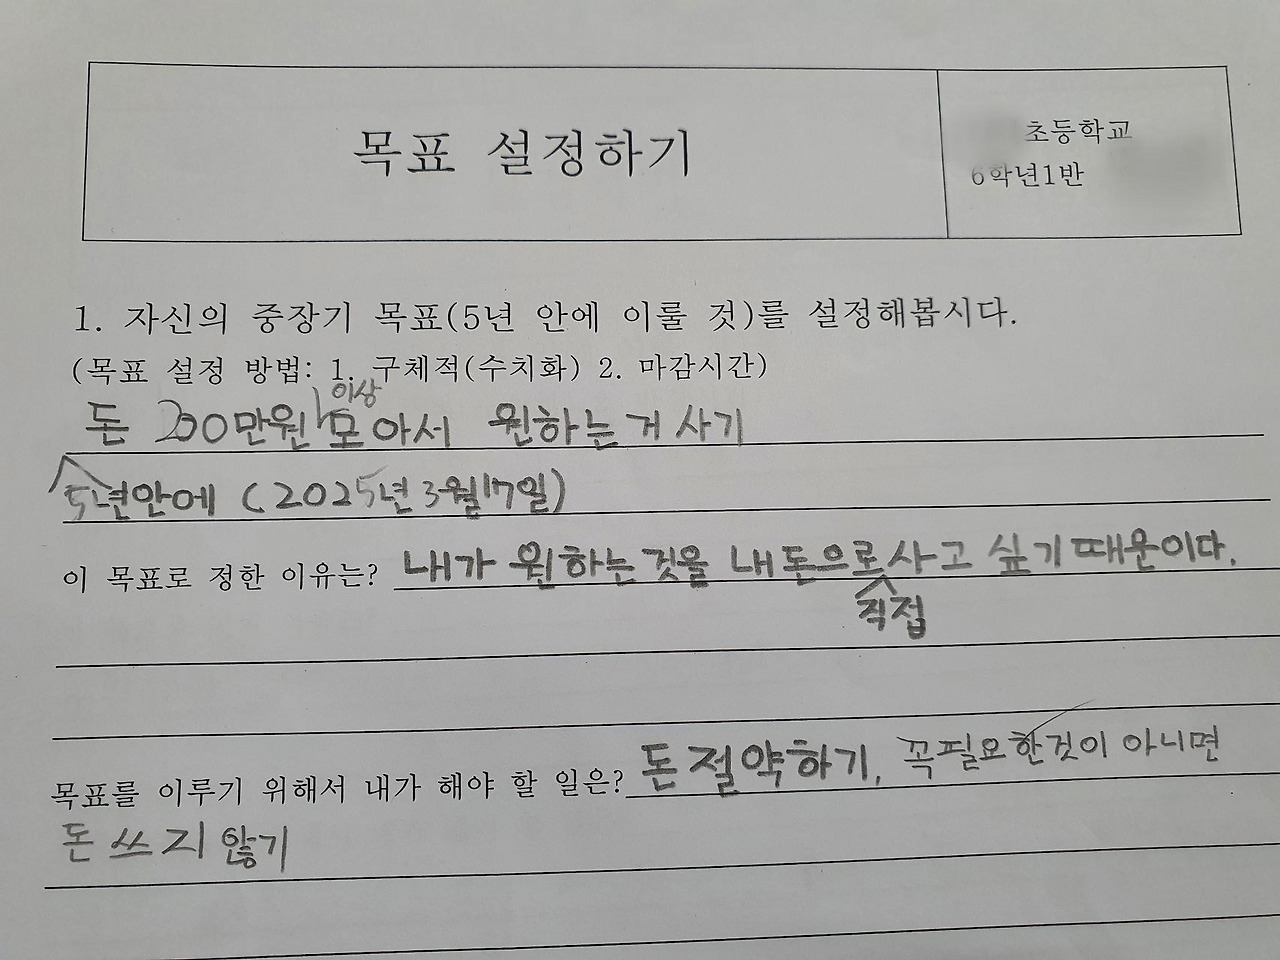 목표 설정하기
초등학교
6학년1반
1. 자신의 중장기 목표(5년 안에 이룰 것)를 설정해봅시다.
(목표 설정 방법: 1. 구체적(수치화) 2. 마감시간)
이상
돈 200만원 모아서 원하는 거 사기
5년안에 (2025년 3월17일)
이 목표로 정한 이유는? 내가 원하는 것을 내 돈으로 사고 싶기 때문이다.
직접
목표를 이루기 위해서 내가 해야 할 일은? 돈 절약하기, 꼭필요한것이 아니면
돈 쓰지 않기